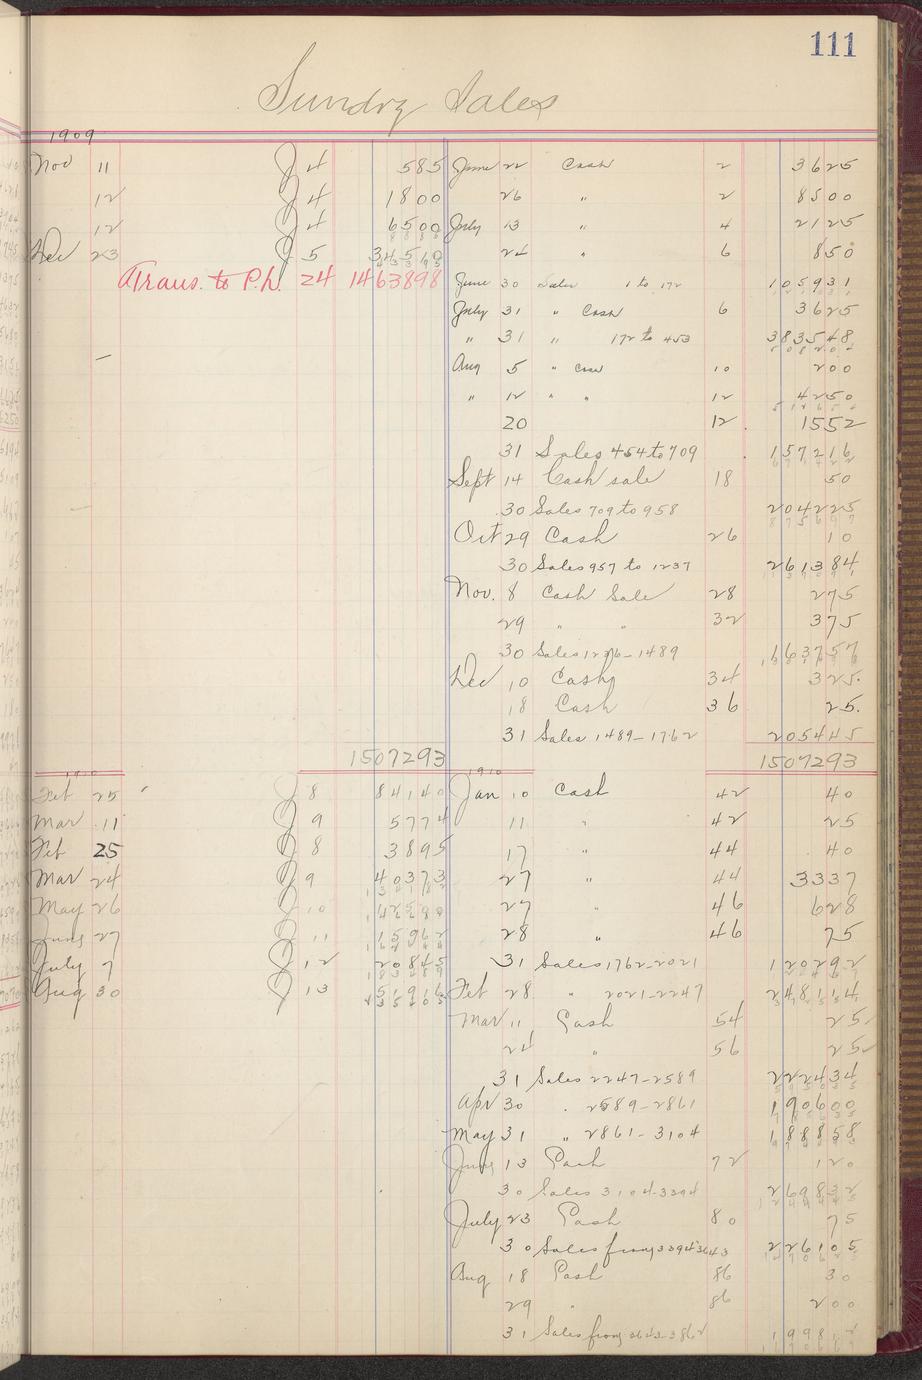 111
Sundry Sales
1909
Nov 11 J 4 585 June 22 Cash 2 3625
12 J 4 1800 26 " 2 8500
12 J 4 6500 July 13 " 4 2125
Dec 23 J 5 34510 24 " 6 850
Trans. to P.h. 24 1463898 June 30 Sales 1 to 172 105931
July 31 " Cash 6 3625
" 31 " 172 to 453 383548
Aug 5 " Cash 10 200
" 12 " " 12 4250
20 12 1552
31 Sales 454 to 709 157216
Sept 14 Cash sale 18 50
30 Sales 709 to 958 204225
Oct 29 Cash 26 10
30 Sales 957 to 1237 261384
Nov. 8 Cash Sale 28 275
29 " " 32 375
30 Sales 1236-1489 163757
Dec 10 Cash 34 325.
18 Cash 36 25.
31 Sales 1489-1762 205445
1507293 1507293
1910 1910
Feb 25 J 8 84140 Jan 10 Cash 42 40
Mar 11 J 9 5774 11 " 42 25
Feb 25 J 8 3895 17 " 44 40
Mar 24 J 9 40373 27 " 44 3337
May 26 J 10 42580 27 " 46 628
June 27 J 11 15962 28 " 46 75
July 7 J 12 20845 31 Sales 1762-2021 120292
Aug 30 J 13 51916 Feb 28 " 2021-2247 248114
Mar 11 Cash 54 25
24 " 56 25
31 Sales 2247-2589 222434
Apr 30 " 2589-2861 190600
May 31 " 2861-3104 188858
June 13 Cash 72 120
30 Sales 3104-3394 269832
July 23 Cash 80 75
30 Sales from 3394 3643 226105
Aug 18 Cash 86 30
29 " 86 200
31 Sales from 3643-3862